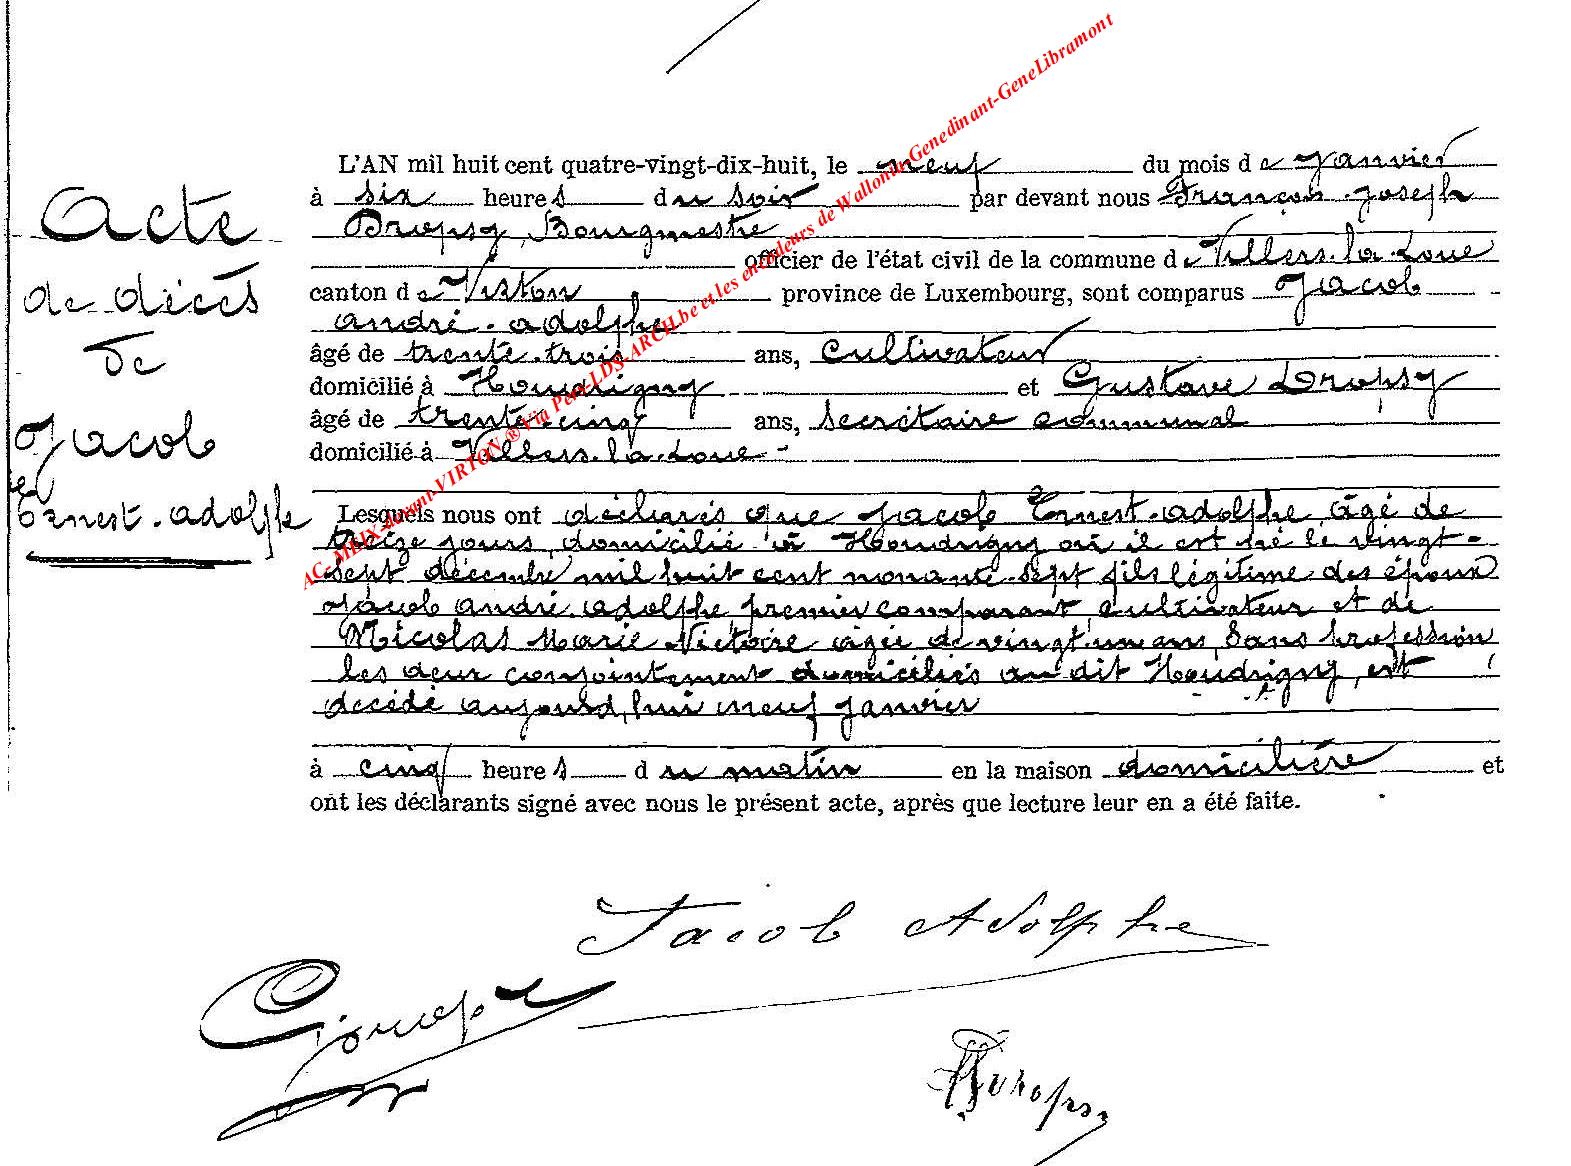 Acte
de décès
de
Jacob
Ernest-Adolphe
L'AN mil huit cent quatre-vingt-dix-huit, le neuf du mois de Janvier
à six heures du soir par devant nous François-Joseph
Dropsy, Bourgmestre
officier de l'état civil de la commune de Villers-la-Loue
canton de Virton province de Luxembourg, sont comparus Jacob
André-Adolphe
âgé de trente-trois ans, cultivateur
domicilié à Houdrigny et Gustave Dropsy
âgé de trente-cinq ans, secrétaire communal
domicilié à Villers-la-Loue -
Lesquels nous ont déclarés que Jacob Ernest-Adolphe, âgé de
treize jours, domicilié à Houdrigny où il est né le vingt-
sept décembre mil huit cent nonante-sept fils légitime des époux
Jacob André-Adolphe, premier comparant, cultivateur et de
Nicolas Marie Victoire âgée de vingt-un ans, sans profession
les deux conjointement domiciliés au dit Houdrigny, est
décédé aujourd'hui neuf Janvier
à cinq heures du matin en la maison domicilière et
ont les déclarants signé avec nous le présent acte, après que lecture leur en a été faite.
Jacob Adolphe
GDropsy
Dropsy
AC-MEIX-devant-VIRTON ® Via Pers-LDS-ARCH.be et les encodeurs de Wallonia-Genedinant-GeneLibramont